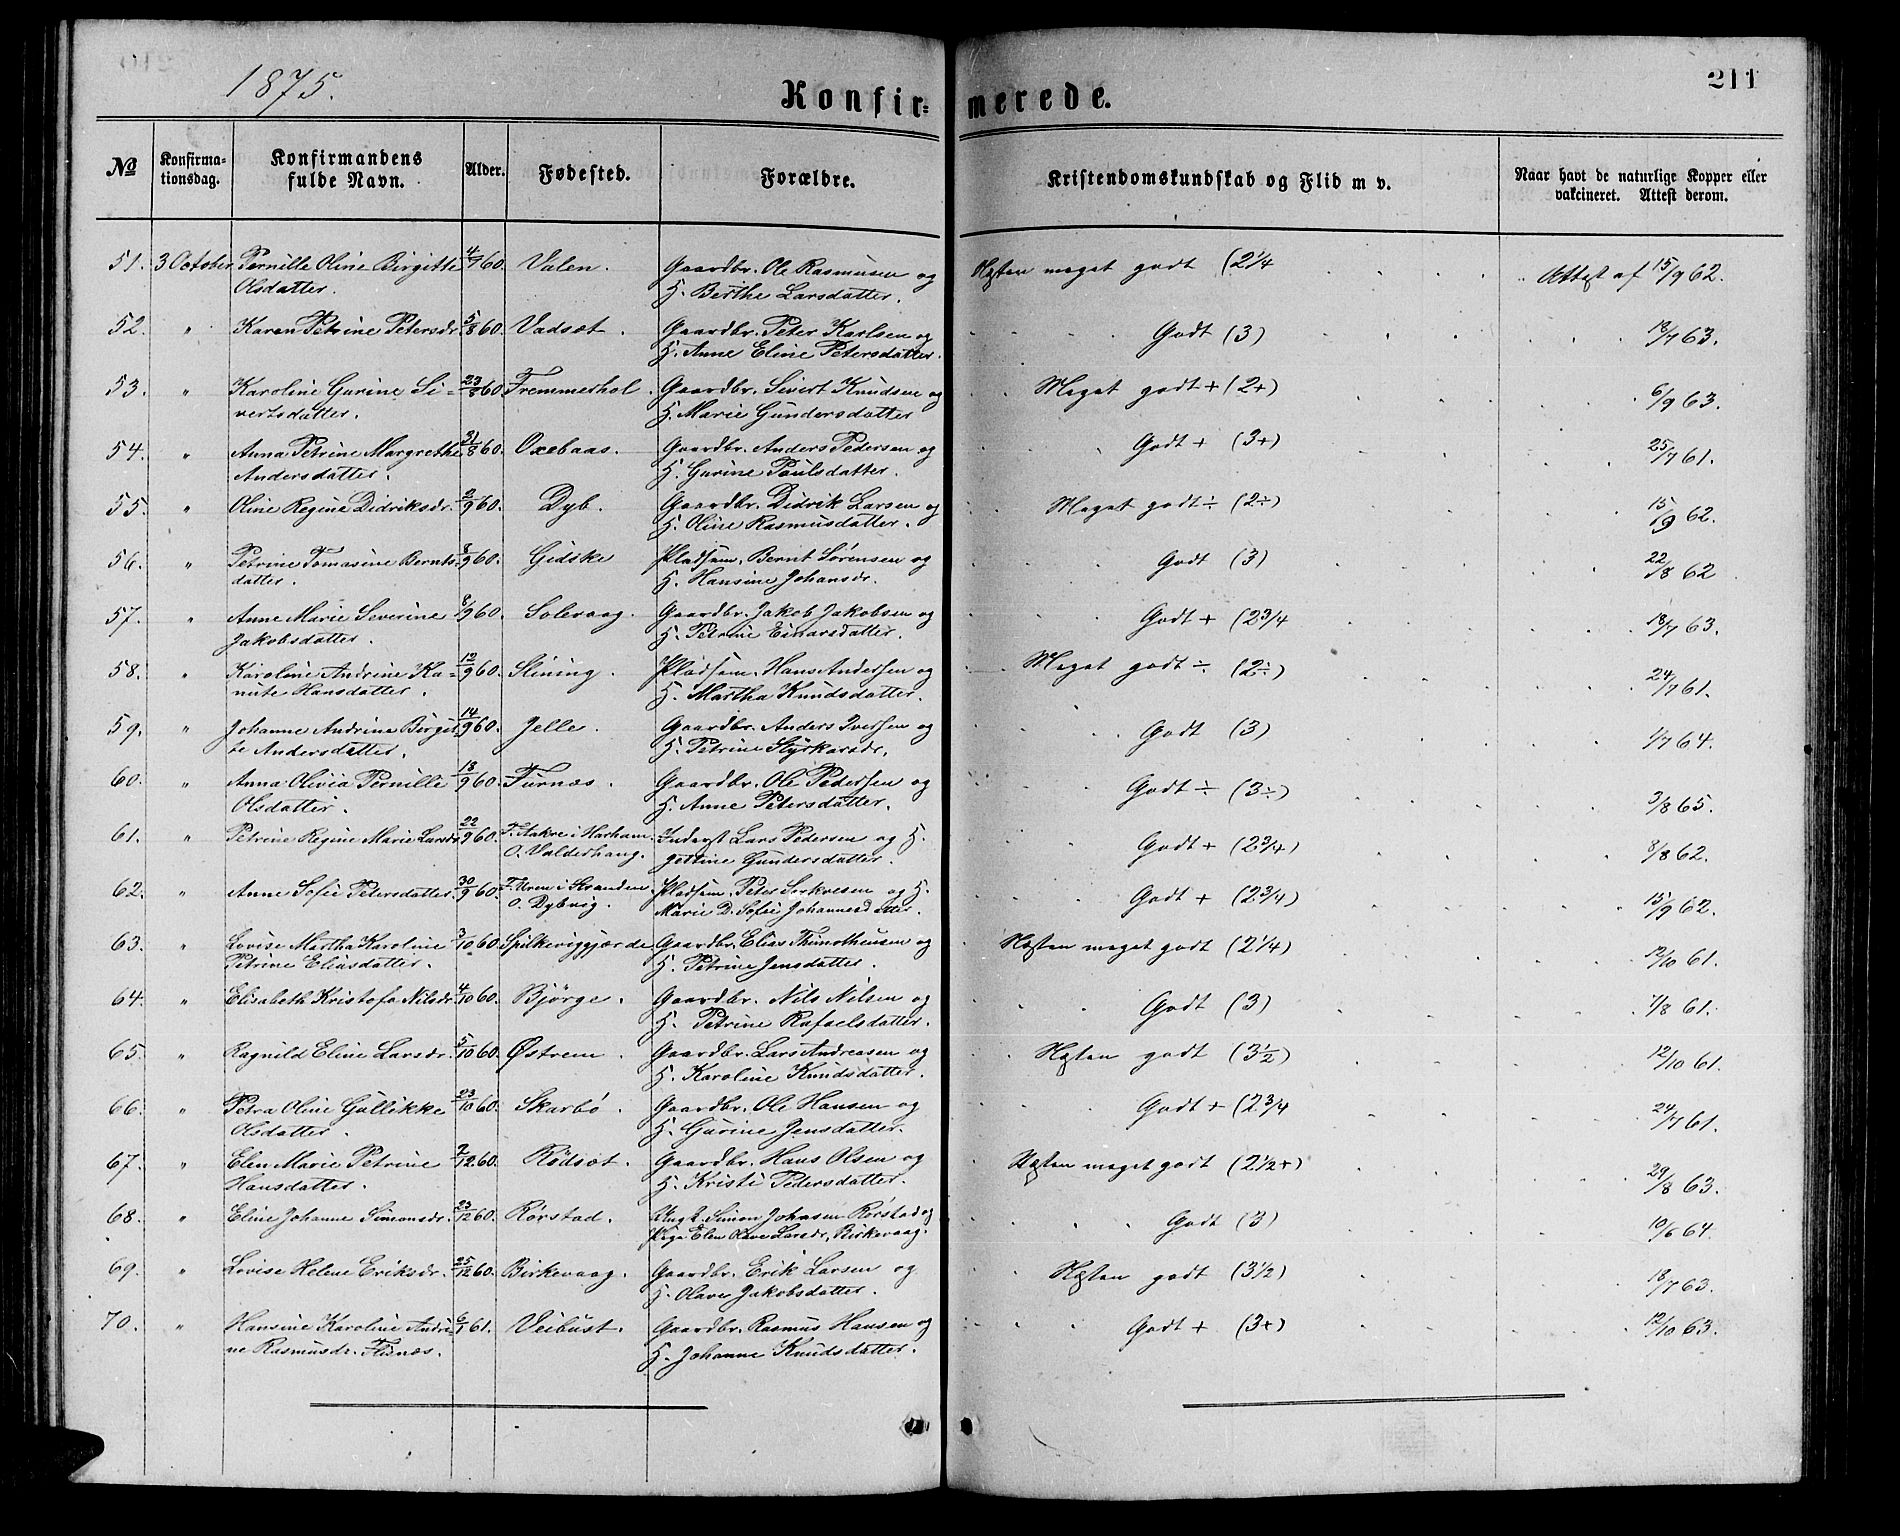 1875.
Konfir=merede.
211
No
Konfirma=tionsdag.
Konfirmandens fulde Navn.
Alder.
Fødested.
Forældre.
Kristendomskundskab og Flid m v.
Naar havt de naturlige Kopper eller vakcineret. Attest derom.
51. 3 October Pernille Oline Birgitte 4/7 60. Valen. Gaardbr. Ole Rasmusen og Næsten meget godt (2 1/4 Attest af 15/9 62.
Olsdatter. H. Berthe Larsdatter.
52. " Karen Petrine Petersdr. 5/8 60. Vadset. Gaardbr. Peter Karlsen og Godt (3) 18/7 63.
H. Anne Eline Petersdatter.
53. " Karoline Gurine Si= 23/8 60. Fremmerhol. Gaardbr. Sivert Knudsen og Meget godt + (2+) 6/9 63.
vertsdatter. H. Marie Gundersdatter
54. " Anna Petrine Margrethe 31/8 60. Oxebaas. Gaardbr. Anders Pedersen og Godt + (3+) 25/7 61.
Andersdatter. H. Gurine Paulsdatter.
55. " Oline Regine Didriksdr. 2/9 60. Dyb. Gaardbr. Didrik Larsen og Meget godt ÷ (2÷) 15/9 62.
H. Oline Rasmusdatter.
56. " Petrine Tomasine Bernts= 8/9 60. Gidske Pladsem. Bernt Sørensen og Godt (3) 22/8 62
datter. H. Hansine Johansdr.
57. " Anne Marie Severine 8/9 60. Solevaag. Gaardbr. Jakob Jakobsen og Godt + (2 3/4 18/7 63.
Jakobsdatter. H. Petrine Einarsdatter.
58. " Karoline Andrine Ka= 12/9 60. Slining. Pladsem. Hans Andersen og Meget godt ÷ (2÷) 24/7 61.
nute Hansdatter. H. Martha Knudsdatter.
59. " Johanne Andrine Birgit= 14/9 60. Jelle. Gaardbr. Anders Iversen og Godt (3) 1/7 64.
te Andersdatter. H. Petrine Styrkarsdr.
60. " Anna Olivia Pernille 18/9 60. Furnæs. Gaardbr. Ole Pedersen og Godt ÷ (3÷) 3/8 65.
Olsdatter. H. Anne Petersdatter.
61. " Petrine Regine Marie Larsdr. 22/9 60. F. Aakre i Harham. Inderst Lars Pedersen og H. Godt + (2 3/4) 8/8 62.
O. Valderhaug. Jettine Gundersdatter.
62. " Anne Sofie Petersdatter. 30/9 60. F. Urem i Stranden. Pladsem. Peter Sørkvesen og H. Godt + (2 3/4) 15/9 62.
O. Dybvig. Marie D. Sofie Johannesdatter.
63. " Lovise Martha Karoline 3/10 60. Spilkeviggjærde Gaardbr. Elias Thimotheusen og Næsten meget godt (2 1/4) 12/10 61.
Petrine Eliasdatter. H. Petrine Jensdatter.
64. " Elisabeth Kristofa Nilsdr. 4/10 60. Bjørge. Gaardbr. Nils Nilsen og Godt (3) 7/8 61.
H. Petrine Rafaelsdatter.
65. " Ragnild Eline Larsdr. 5/10 60. Østrem. Gaardbr. Lars Andreasen og Næsten godt (3 1/2) 12/10 61.
H. Karoline Knudsdatter.
66. " Petra Oline Gullikke 23/10 60. Skarbø. Gaardbr. Ole Hansen og Godt + (2 3/4 24/7 61.
Olsdatter. H. Gurine Jensdatter.
67. " Elen Marie Petrine 7/12 60. Rødset. Gaardbr. Hans Olsen og Næsten meget godt (2 1/2+) 29/8 63.
Hansdatter. H. Kristi Pedersdatter.
68. " Eline Johanne Simonsdr. 23/12 60. Rørstad. Ungk. Simon Johnsen Rørstad og Godt (3) 10/6 64.
Pige Elen Olave Larsdr. Birkevaag.
69. " Lovise Helene Eriksdr. 25/12 60. Birkevaag. Gaardbr. Erik Larsen og Næsten godt (3 1/2) 18/7 63.
H. Olave Jakobsdatter.
70. " Hansine Karoline Andri= 6/1 61. Veibust. Gaardbr. Rasmus Hansen og Godt + (3+) 12/10 63.
ne Rasmusdr. Flisnæs. H. Johanne Knudsdatter.